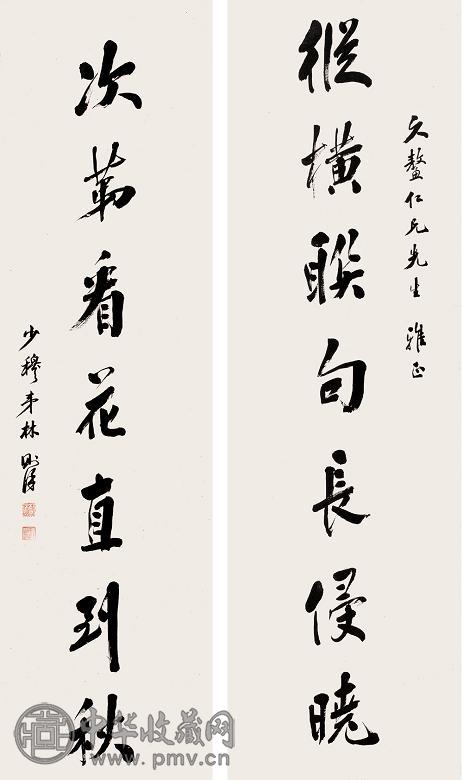 文鰲仁兄先生 雅正
縱橫聯句長侵曉
次第看花直到秋
少穆弟林則徐
中华收藏网
www.pmv.cn